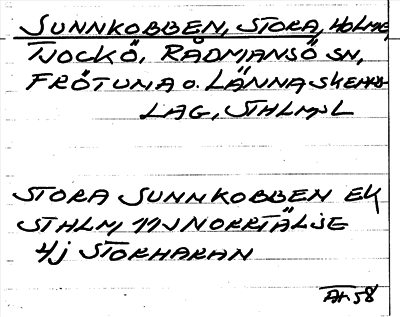 SUNNKOBBEN, STORA, HOLME,
TJOCKÖ, RÅDMANSÖ SN,
FRÖTUNA O. LÄNNA SKEPPS-
LAG, STHLMS L
STORA SUNNKOBBEN EK
STHLM, 11J NORRTÄLJE
4j STORHARAN